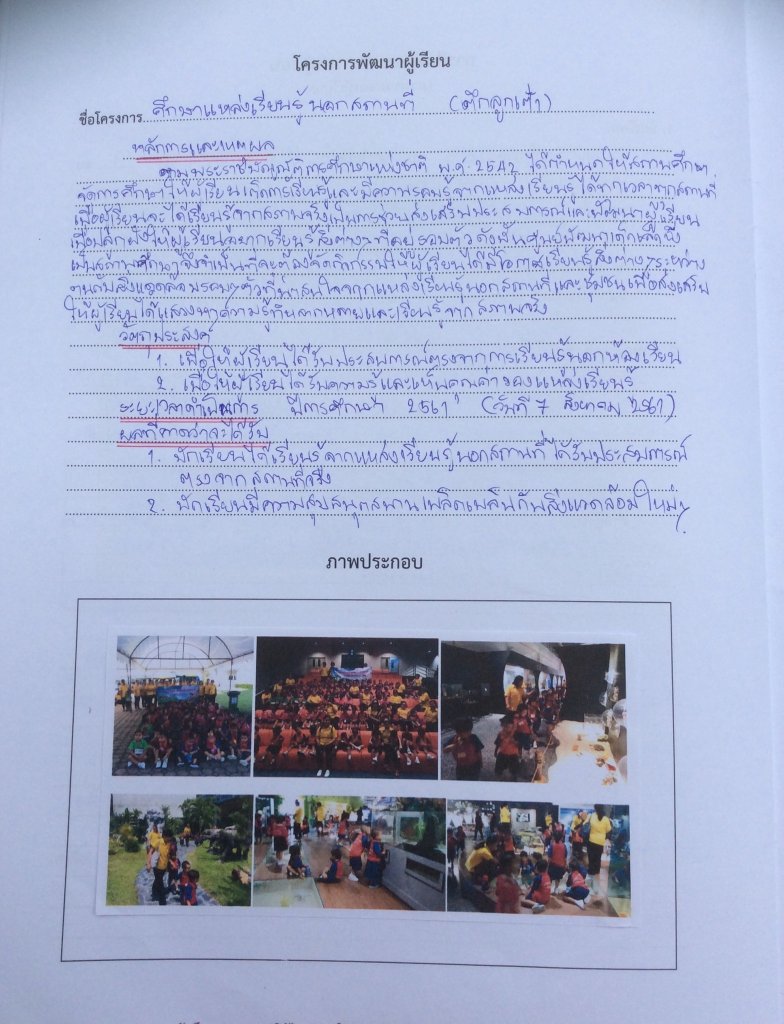 โครงการพัฒนาผู้เรียน
ชื่อโครงการ ศึกษาแหล่งเรียนรู้นอกสถานที่ (ตึกลูกเต๋า)
หลักการและเหตุผล
ตามพระราชบัญญัติการศึกษาแห่งชาติ พ.ศ. 2542 ได้กำหนดให้สถานศึกษา
จัดการศึกษาให้ผู้เรียนเกิดการเรียนรู้และมีความรอบรู้จากแหล่งเรียนรู้ได้ทุกเวลาทุกสถานที่
เพื่อผู้เรียนจะได้เรียนรู้จากสภาพจริงเป็นการช่วยส่งเสริมประสบการณ์และพัฒนาผู้เรียน
เพื่อปลูกฝังให้ผู้เรียนอยากเรียนรู้สิ่งต่างๆที่อยู่รอบตัว ดังนั้นศูนย์พัฒนาเด็กเล็กซึ่ง
เป็นสถานศึกษาจึงจำเป็นที่จะต้องจัดกิจกรรมให้ผู้เรียนได้มีโอกาสเรียนรู้สิ่งต่างๆระหว่าง
ตนกับสิ่งแวดล้อมรอบๆตัวที่น่าสนใจจากแหล่งเรียนรู้นอกสถานที่และชุมชนเพื่อส่งเสริม
ให้ผู้เรียนได้แสวงหาความรู้ที่หลากหลายและเรียนรู้จากสภาพจริง
วัตถุประสงค์
1. เพื่อให้ผู้เรียนได้รับประสบการณ์ตรงจากการเรียนรู้นอกห้องเรียน
2. เพื่อให้ผู้เรียนได้รับความรู้และเห็นคุณค่าของแหล่งเรียนรู้
ระยะเวลาดำเนินการ ปีการศึกษา 2561 (วันที่ 7 สิงหาคม 2561)
ผลที่คาดว่าจะได้รับ
1. นักเรียนได้เรียนรู้จากแหล่งเรียนรู้นอกสถานที่ได้รับประสบการณ์
ตรงจากสถานที่จริง
2. นักเรียนมีความสุขสนุกสนานเพลิดเพลินกับสิ่งแวดล้อมใหม่ๆ
ภาพประกอบ